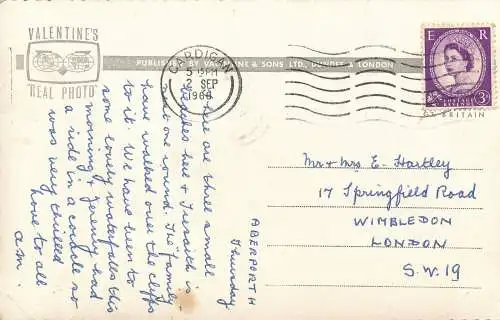 VALENTINE'S
"REAL PHOTO"
PUBLISHED BY VALENTINE & SONS LTD., DUNDEE & LONDON
CARDIGAN
5 15PM
2 SEP
1960
E R
POSTAGE REVENUE
3D
BRITAIN
ABERPORTH
Thursday
There are three small
beaches here & Tresaith is
next one round. The family
have walked over the cliffs
to it. We have been to
some lovely waterfalls this
morning & Jeremy had
a ride in a coracle so
was very thrilled
love to all
a.m.
Mr & Mrs E. Hartley
17 Springfield Road
WIMBLEDON
LONDON
S.W.19